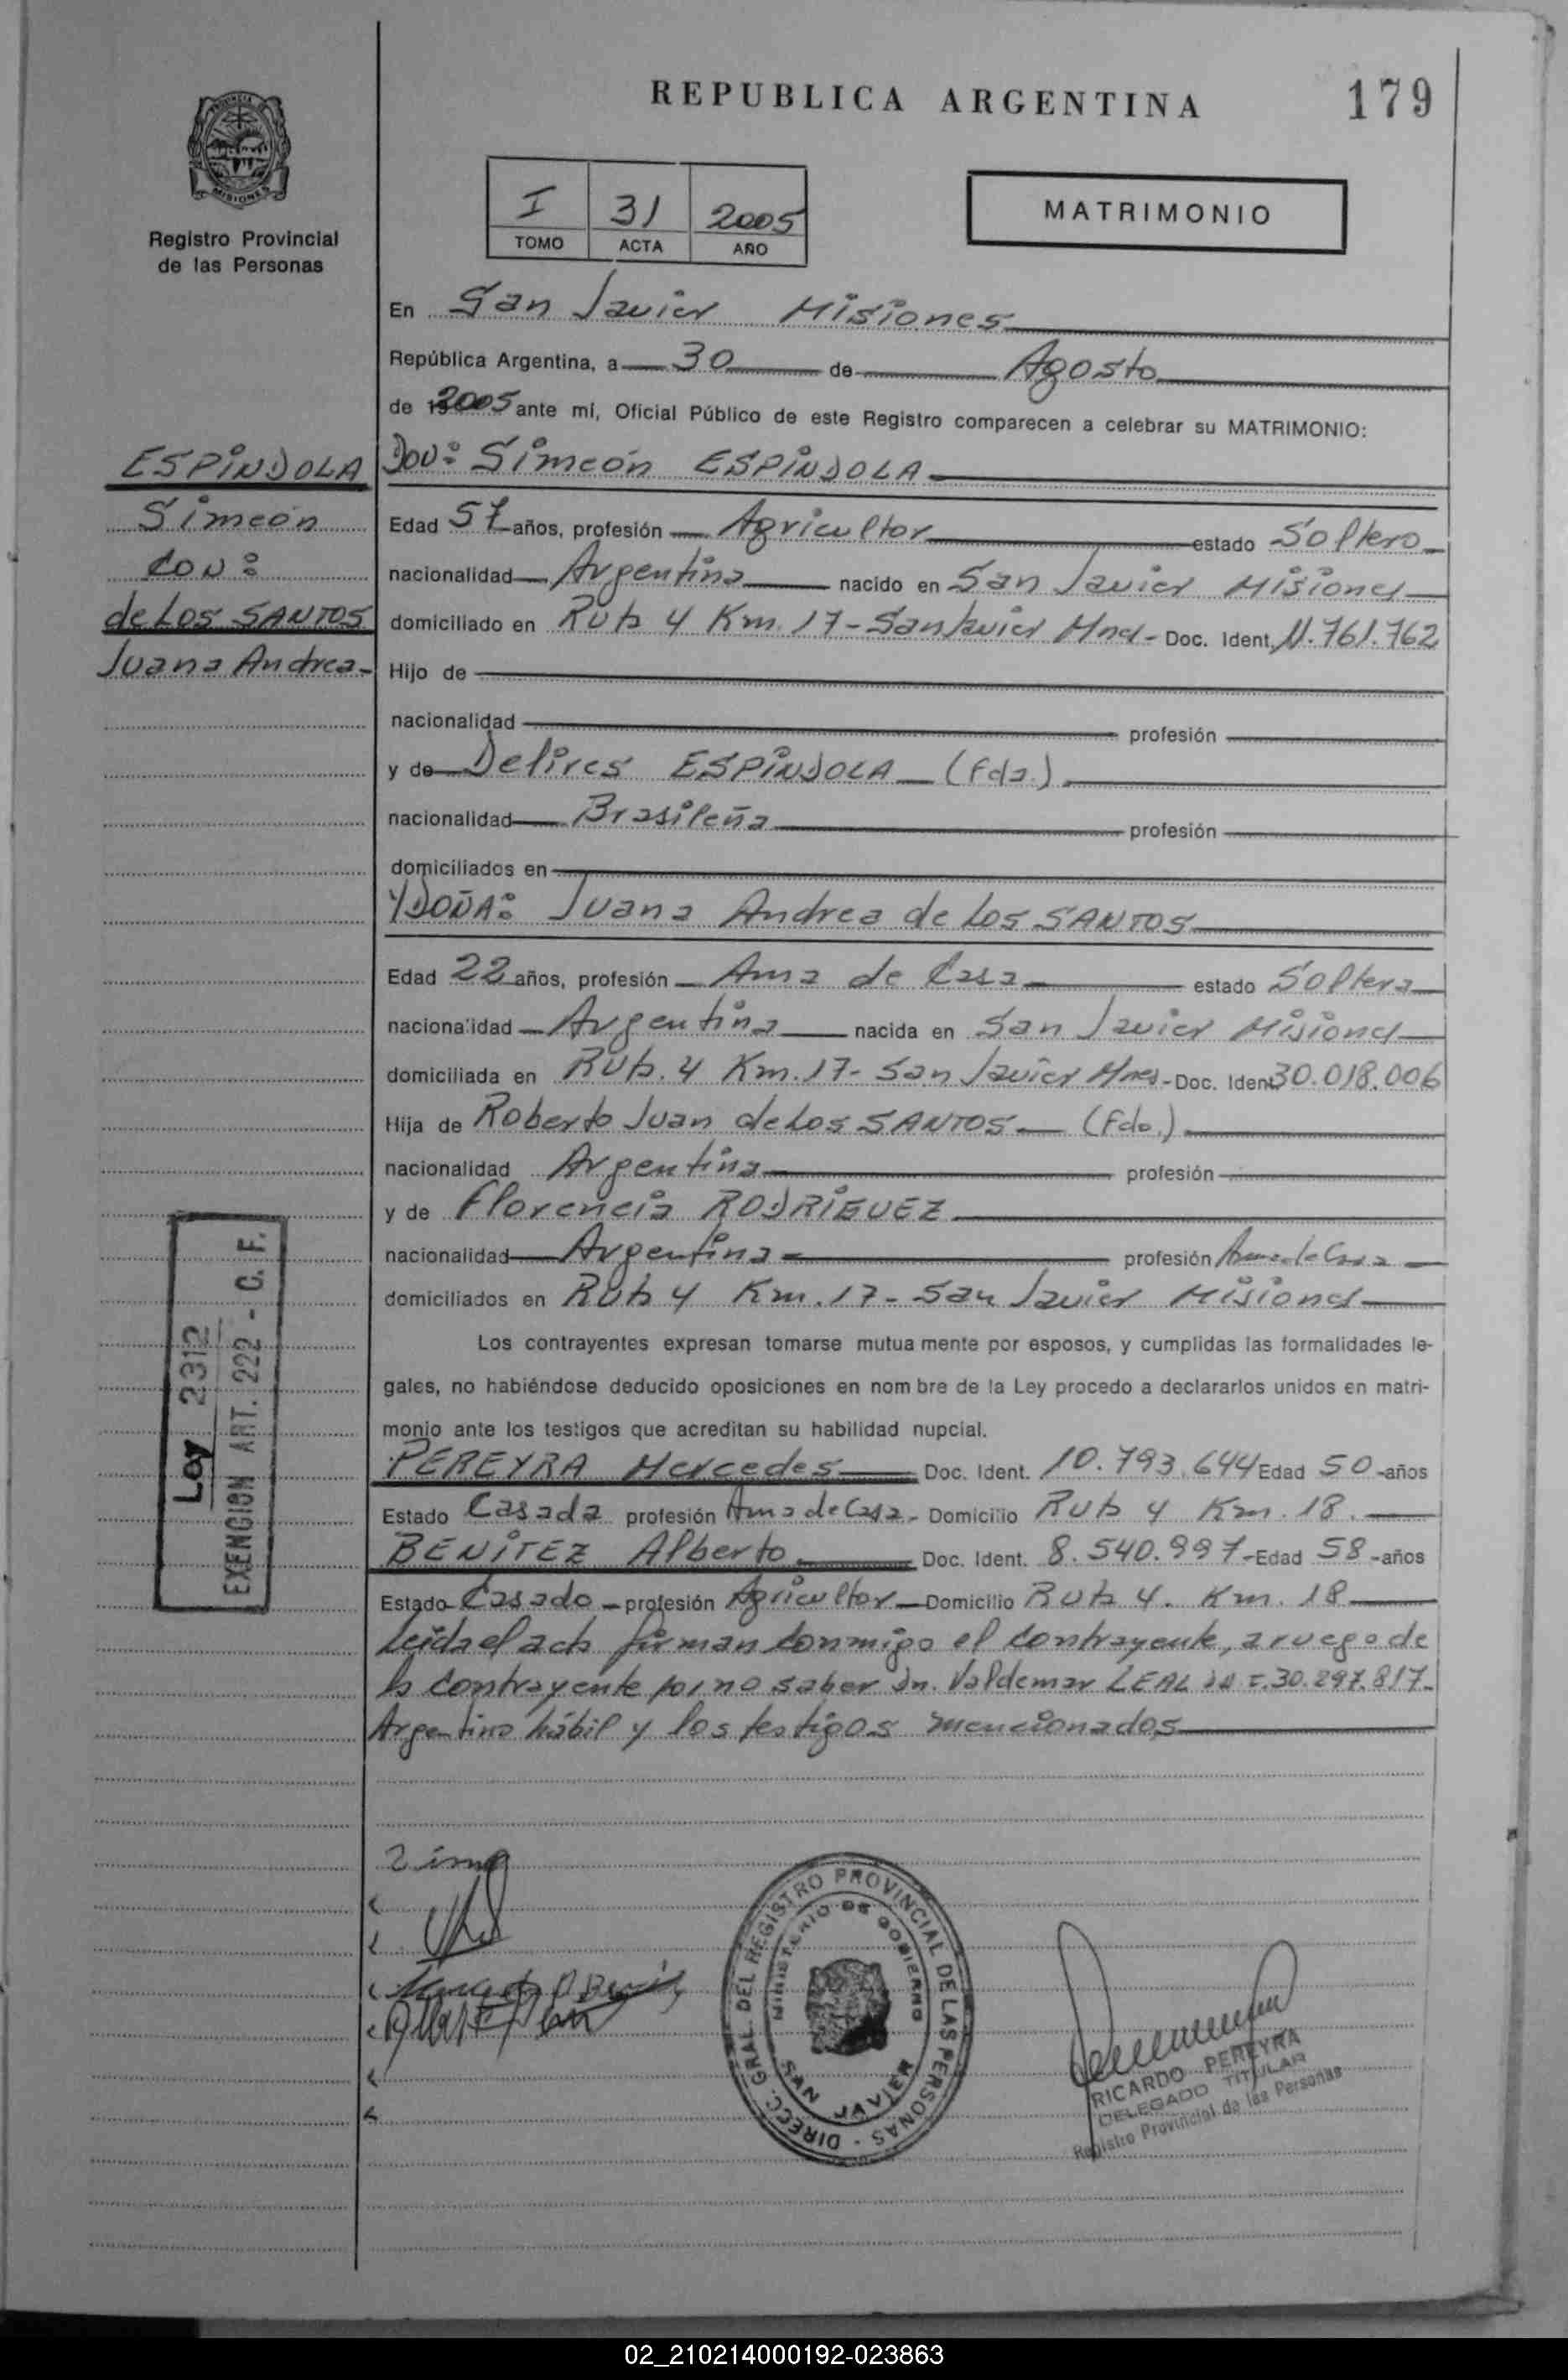 REPUBLICA ARGENTINA
179
MISIONES
Registro Provincial
de las Personas
I 31 2005
TOMO ACTA AÑO
MATRIMONIO
En San Javier Misiones
República Argentina, a 30 de Agosto
de 2005 ante mí, Oficial Público de este Registro comparecen a celebrar su MATRIMONIO:
ESPINDOLA
Simeón
CON:
de LOS SANTOS
Juana Andrea
DON: Simeón ESPINDOLA
Edad 57 años, profesión Agricultor estado Soltero
nacionalidad Argentina nacido en San Javier Misiones
domiciliado en Ruta 4 Km. 17 - San Javier Mnes - Doc. Ident. 11.761.762
Hijo de
nacionalidad profesión
y de Delires ESPINDOLA (Fda.)
nacionalidad Brasileña profesión
domiciliados en
Y DOÑA: Juana Andrea de Los SANTOS
Edad 22 años, profesión Ama de Casa estado Soltera
nacionalidad Argentina nacida en San Javier Misiones
domiciliada en Ruta. 4 Km. 17 - San Javier Mnes - Doc. Ident 30.018.006
Hija de Roberto Juan de Los SANTOS (Fdo.)
nacionalidad Argentina profesión
y de Florencia RODRIGUEZ
nacionalidad Argentina profesión Ama de Casa
domiciliados en Ruta 4 Km. 17 - San Javier Misiones
Los contrayentes expresan tomarse mutua mente por esposos, y cumplidas las formalidades le-
gales, no habiéndose deducido oposiciones en nom bre de la Ley procedo a declararlos unidos en matri-
monio ante los testigos que acreditan su habilidad nupcial.
PEREYRA Mercedes Doc. Ident. 10.793.644 Edad 50 -años
Estado Casada profesión Ama de Casa - Domicilio Ruta 4 Km. 18.
BENITEZ Alberto Doc. Ident. 8.540.997 - Edad 58 -años
Estado Casado - profesión Agricultor - Domicilio Ruta 4. Km. 18
Leida el acta firman conmigo el contrayente, a ruego de
la contrayente por no saber Dn. Valdemar LEAL 30.297.817.
Argentino hábil y los testigos mencionados
Ley 2312
EXENCION ART. 222 - C. F.
DIRECC. GRAL. DEL REGISTRO PROVINCIAL DE LAS PERSONAS
MINISTERIO DE GOBIERNO
SAN JAVIER
RICARDO PEREYRA
DELEGADO TITULAR
Registro Provincial de las Personas
02_210214000192-023863